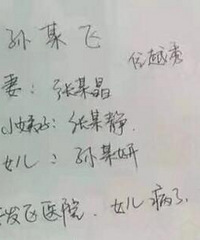 孙某飞
住越秀
妻：张某晶
小姨子：张某静
女儿：孙某妍
发区医院．女儿病了